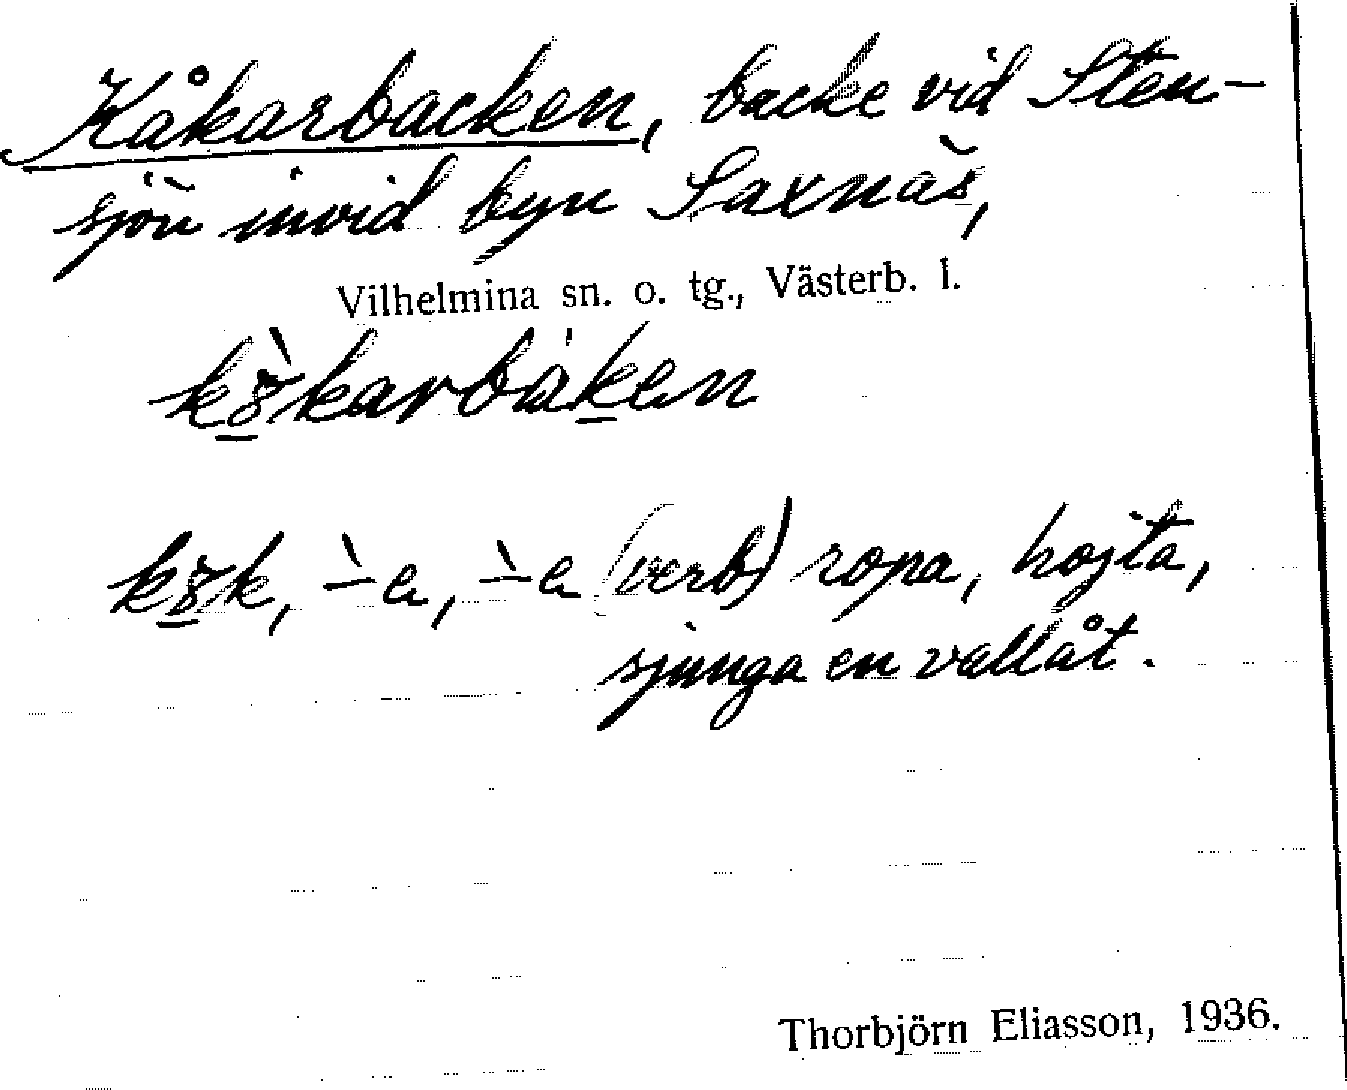 Kåkarbacken, backe vid Sten-
sjön invid byn Saxnäs,
Vilhelmina sn. o. tg., Västerb. l.
(verb) ropa, hojta,
sjunga en vallåt.
Thorbjörn Eliasson, 1936.